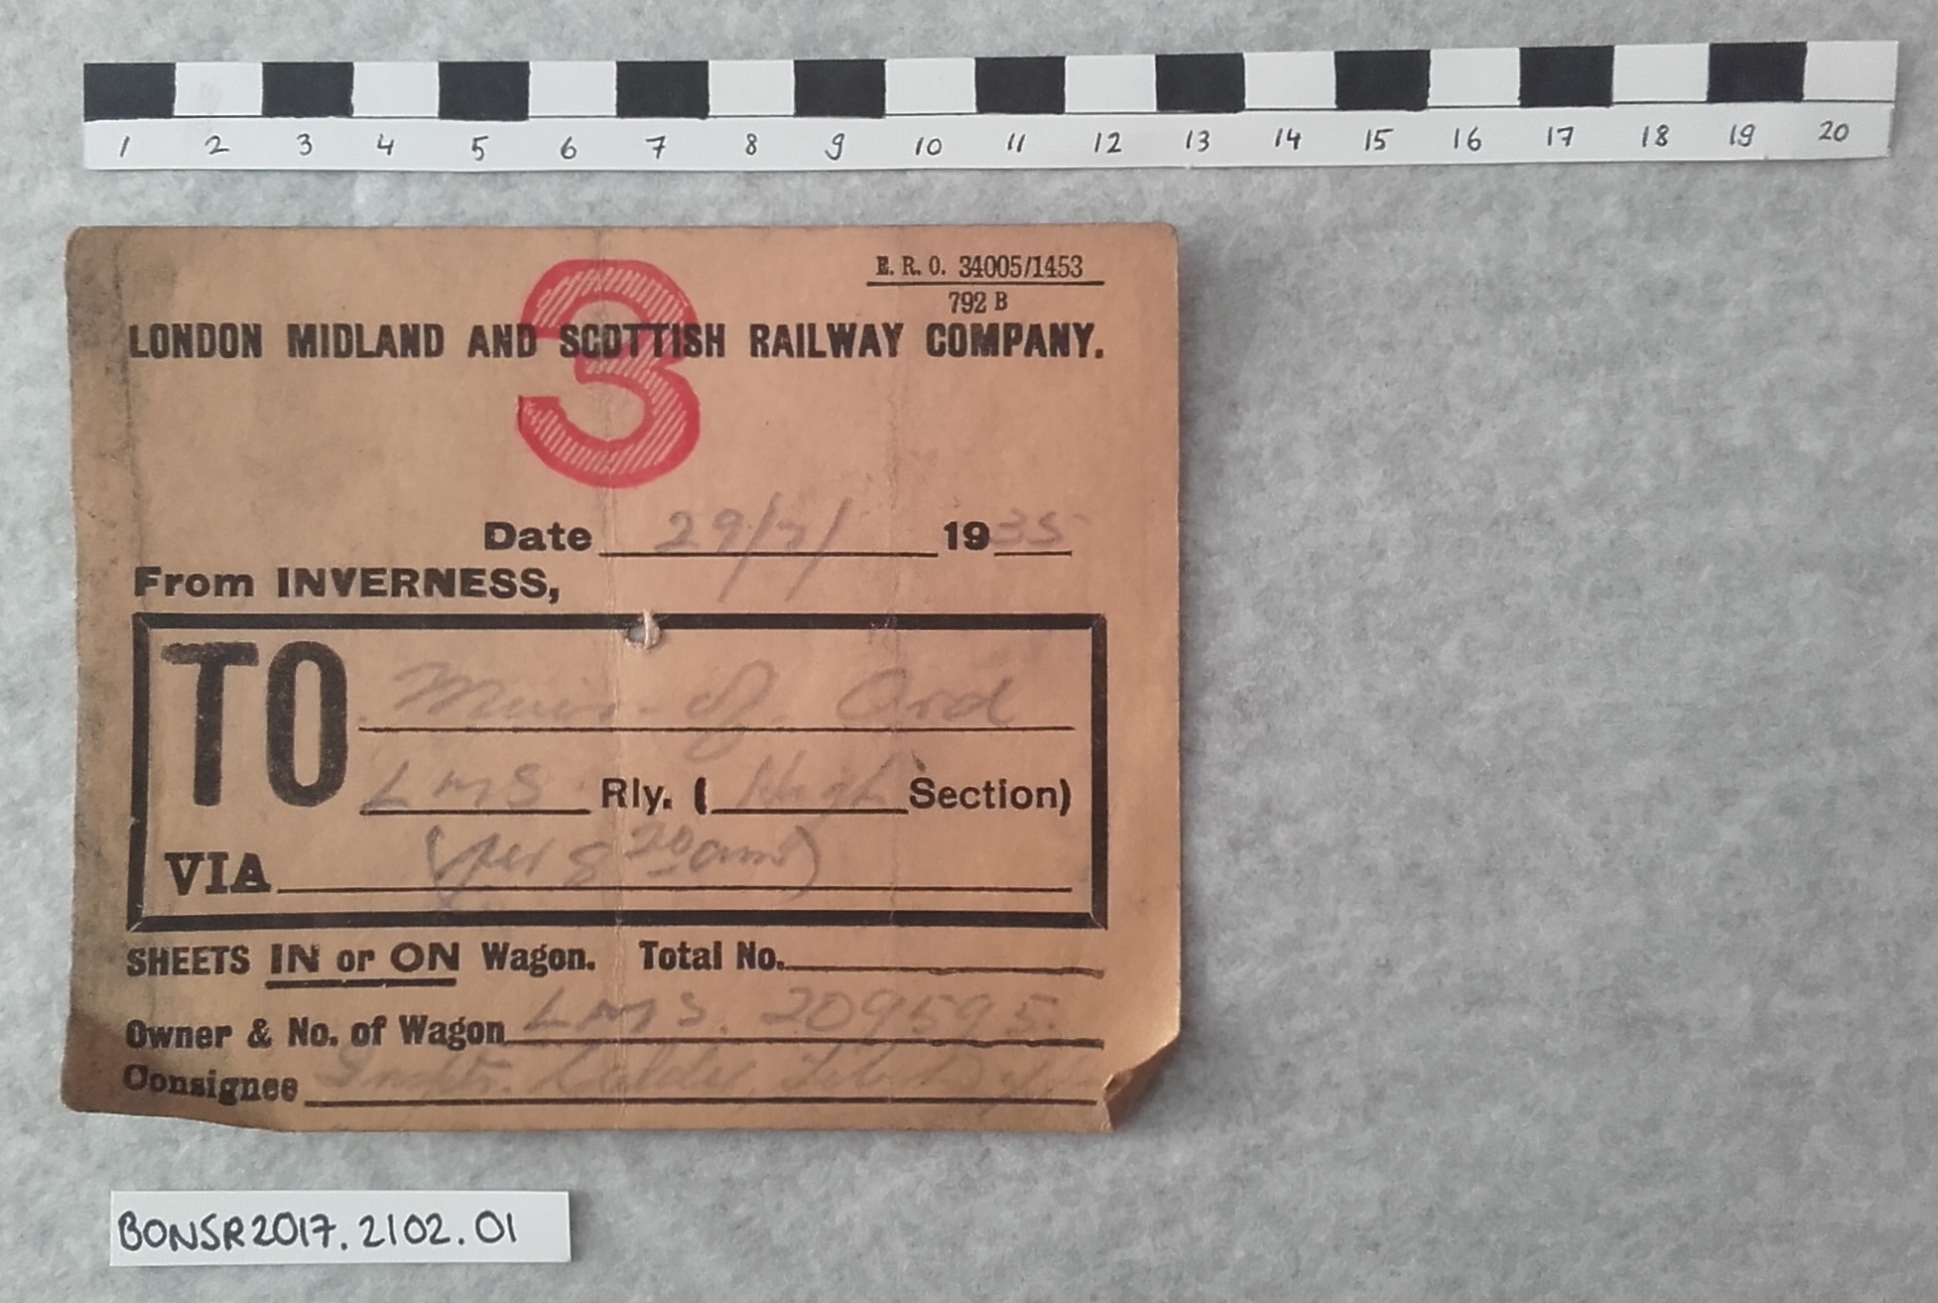 1 2 3 4 5 6 7 8 9 10 11 12 13 14 15 16 17 18 19 20
E. R. O. 34005/1453
792 B
3
LONDON MIDLAND AND SCOTTISH RAILWAY COMPANY.
Date 29/7/ 1935
From INVERNESS,
TO Muir of Ord
LMS Rly. (High Section)
VIA (per 8 20 am)
SHEETS IN or ON Wagon. Total No.
Owner & No. of Wagon LMS. 209595
Consignee
BONSR2017.2102.01